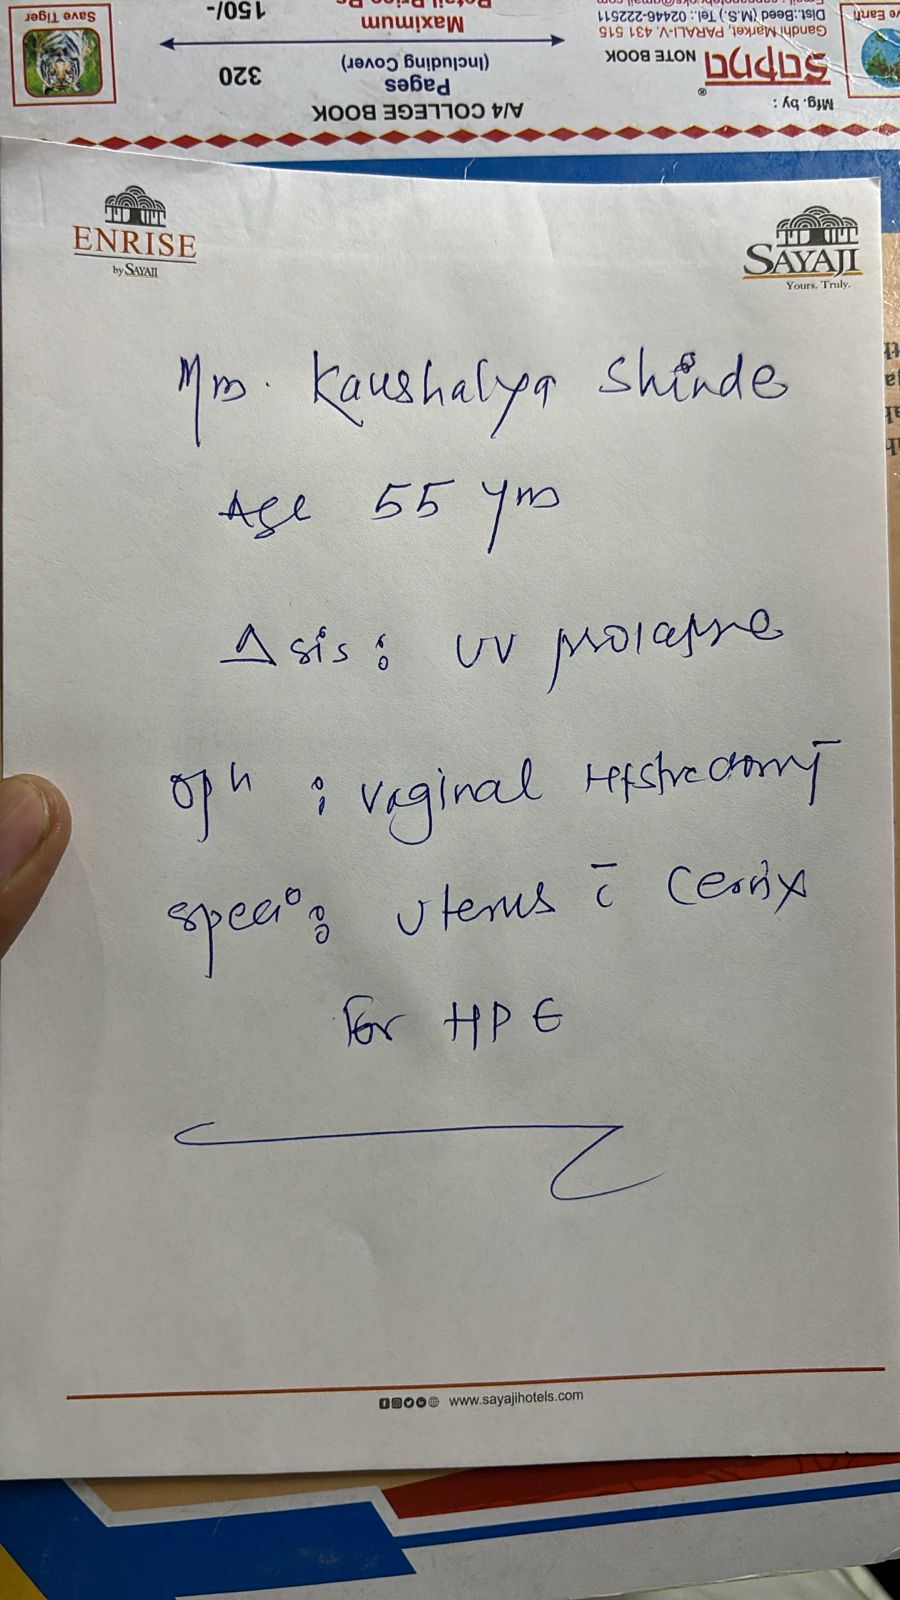 Save Tiger
150/-
Maximum
320
Pages
(Including Cover)
A/4 COLLEGE BOOK
Dist.:Beed (M.S.) Tel.: 02446-222511
Gandhi Market, PARALI-V. 431 515
Sapna NOTE BOOK
®
Mfg. by :
ENRISE
by SAYAJI
SAYAJI
Yours. Truly.
Mrs. Kaushalya Shinde
Age 55 yrs
Δsis : UV prolapse
opn : vaginal Hystrectomy
speci : Uterus c̄ Cervix
For HPE
www.sayajihotels.com